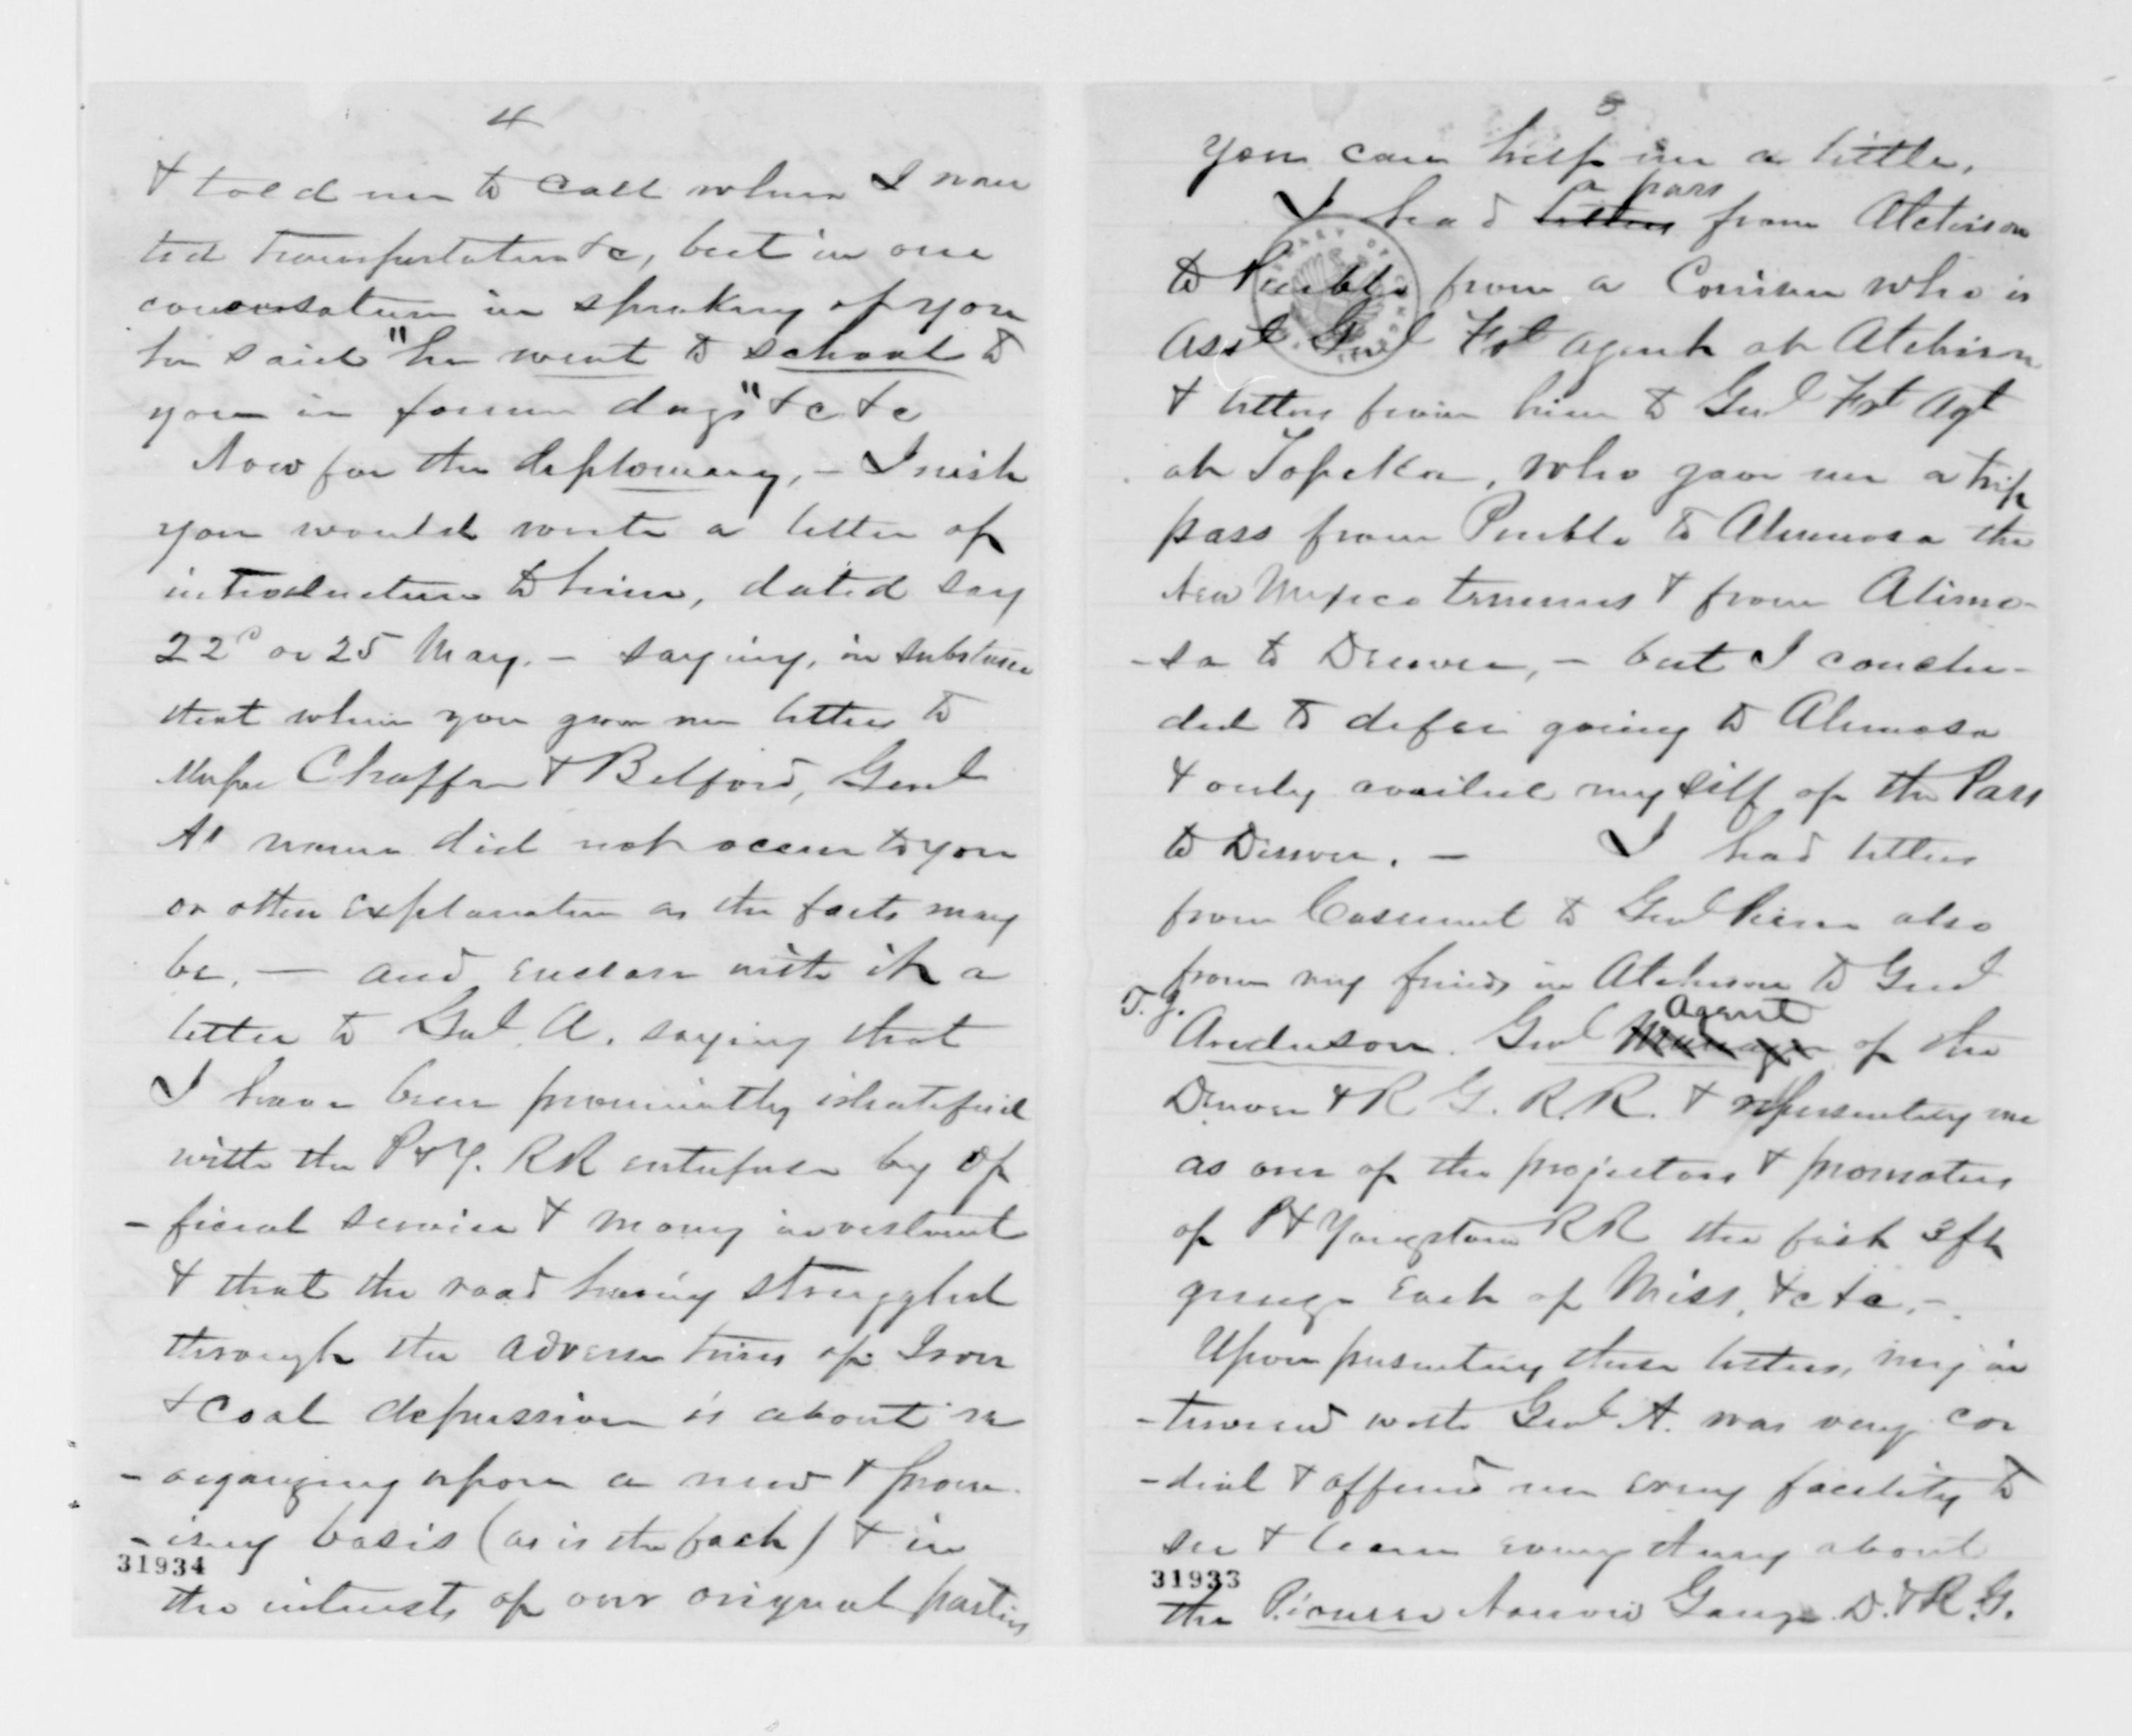 4
& told me to call when I wan
ted transportation &c, but in one
conversation in speaking of you
he said "he went to school to
you in former days" &c &c
Now for the diplomacy, – I wish
you would write a letter of
introduction to him, dated say
22d or 25 May. – saying, in substance
that when you gave me letters to
Messrs Chaffee & Belford, Genl
A's name did not occur to you
or other explanation as the facts may
be, — and enclose with it a
letter to Genl A. saying that
I have been prominently identified
with the P&Y. RR enterprise by of
- ficial service & money investment
& that the road having struggled
through the adverse times of Iron
& Coal depression is about re
- organizing upon a new & prom
- ising basis (as is the fact) & in
the interests of our original parties
31934
5
you can help me a little.
I had letters a pass from Atchison
to Pueblo from a Cousin who is
Asst Genl Frt Agent at Atchison
& letters from him to Genl Frt Agt
at Topeka, who gave me a trip
pass from Pueblo to Alamosa the
New Mexico terminus & from Alamo-
- sa to Denver, – but I conclu-
ded to defer going to Alamosa
& only availed myself of the Pass
to Denver. – I had letters
from Casement to Genl also
from my friends in Atchison to Genl
T. J.
Anderson. Genl Manager Agent of the
Denver & R G. R.R. & representing me
as one of the projectors & promoters
of P & Youngstown RR the first 3 ft
gauge East of Miss, &c &c. –
Upon presenting these letters, my in
- terview with Genl A. was very cor
- dial & offered me every facility to
see & learn everything about
the Pioneer Narrow Gauge D. & R. G.
31933